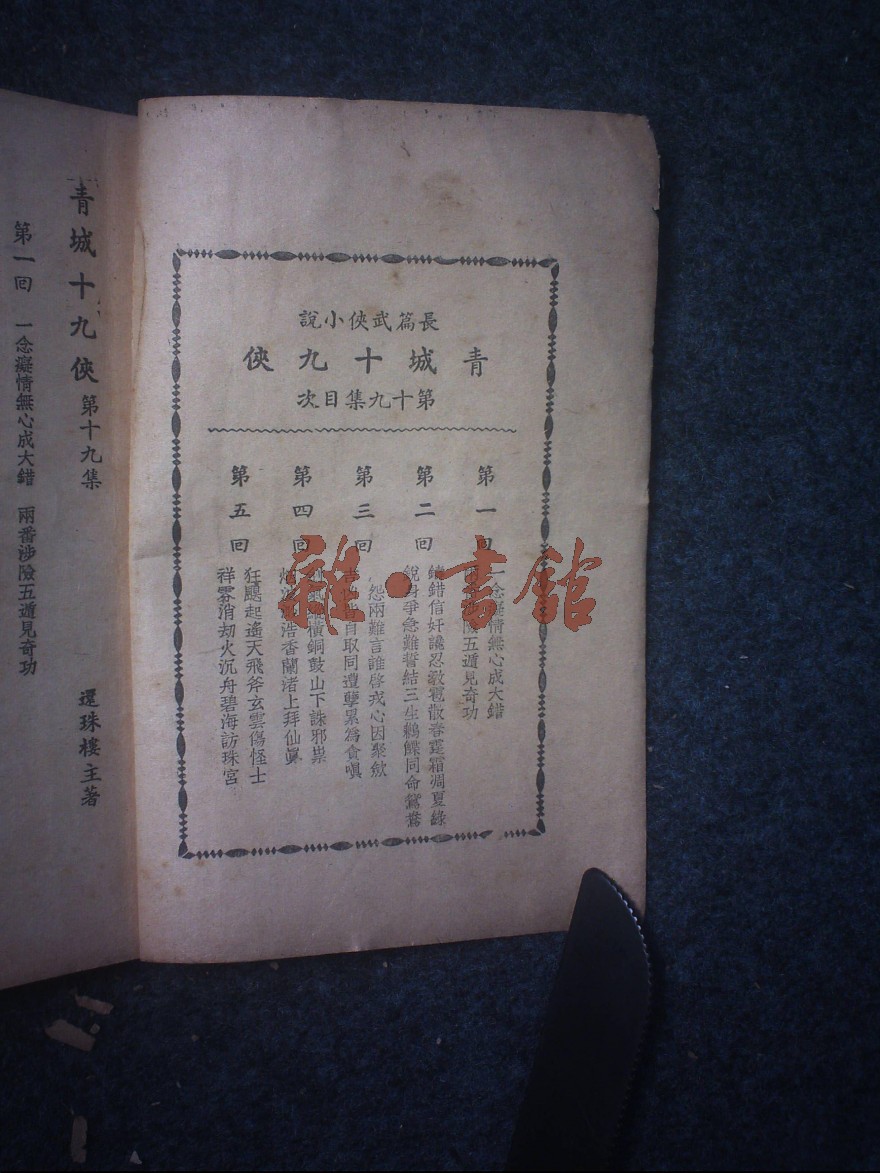 長篇武俠小說
青城十九俠
第十九集目次
第一回
一念癡情無心成大錯
險五遁見奇功
第二回
鑄錯信奸讒忍敎雹散春霆霜凋夏綠
銳身爭急難誓結三生鶼鰈同命鴛鴦
第三回
怨兩難言誰啓戎心因聚歛
自取同遭孽累爲貪嗔
第四回
橫銅鼓山下誅邪祟
浩香蘭渚上拜仙眞
第五回
狂飈起遙天飛斧玄雲傷怪士
祥雰消劫火沉舟碧海訪珠宮
青城十九俠 第十九集
還珠樓主著
第一回 一念癡情無心成大錯 兩番涉險五遁見奇功
雜·書館